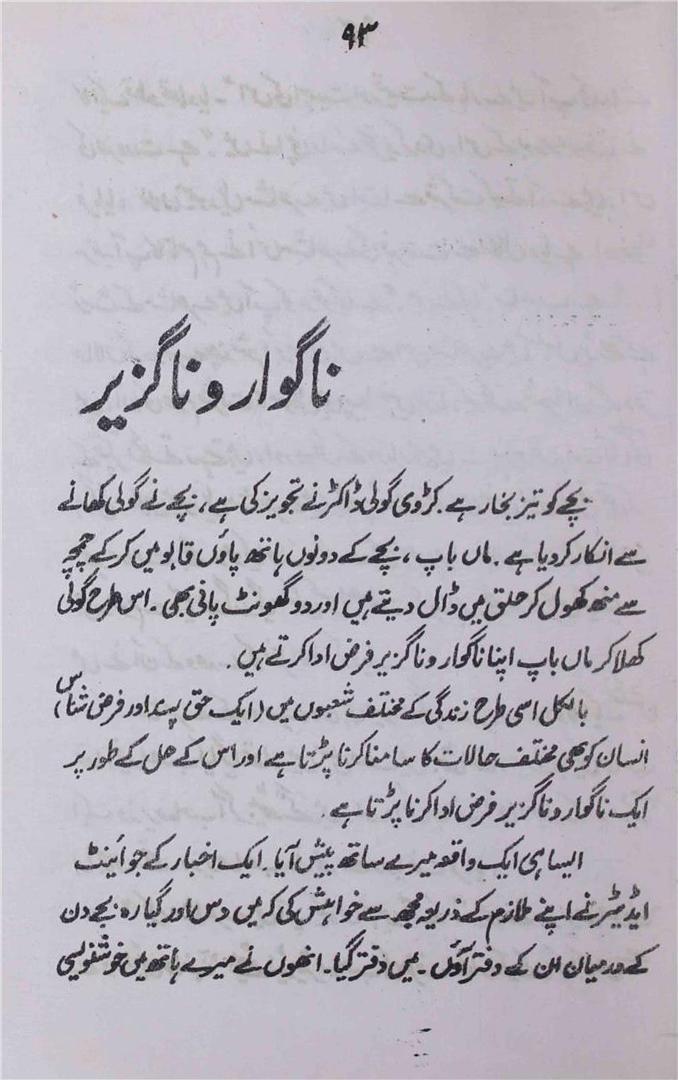 ۹۳
ناگوار و ناگزیر
بچے کو تیز بخار ہے۔ کڑوی گولی ڈاکٹر نے تجویز کی ہے، بچے نے گولی کھانے
سے انکار کر دیا ہے۔ ماں باپ، بچے کے دونوں ہاتھ پاؤں قابو میں کر کے چمچہ
سے منھ کھول کر حلق میں ڈال دیتے ہیں اور دو گھونٹ پانی بھی۔ اس طرح گولی
کھلا کر ماں باپ اپنا ناگوار و ناگزیر فرض ادا کرتے ہیں۔
بالکل اسی طرح زندگی کے مختلف شعبوں میں (ایک حق پسند اور فرض شناس)
انسان کو بھی مختلف حالات کا سامنا کرنا پڑتا ہے اور اس کے حل کے طور پر
ایک ناگوار و ناگزیر فرض ادا کرنا پڑتا ہے۔
ایسا ہی ایک واقعہ میرے ساتھ پیش آیا۔ ایک اخبار کے جوائینٹ
ایڈیٹر نے اپنے ملازم کے ذریعہ مجھ سے خواہش کی کہ میں دس اور گیارہ بجے دن
کے درمیان ان کے دفتر آؤں۔ میں دفتر گیا۔ انھوں نے میرے ہاتھ میں خوشنویسی